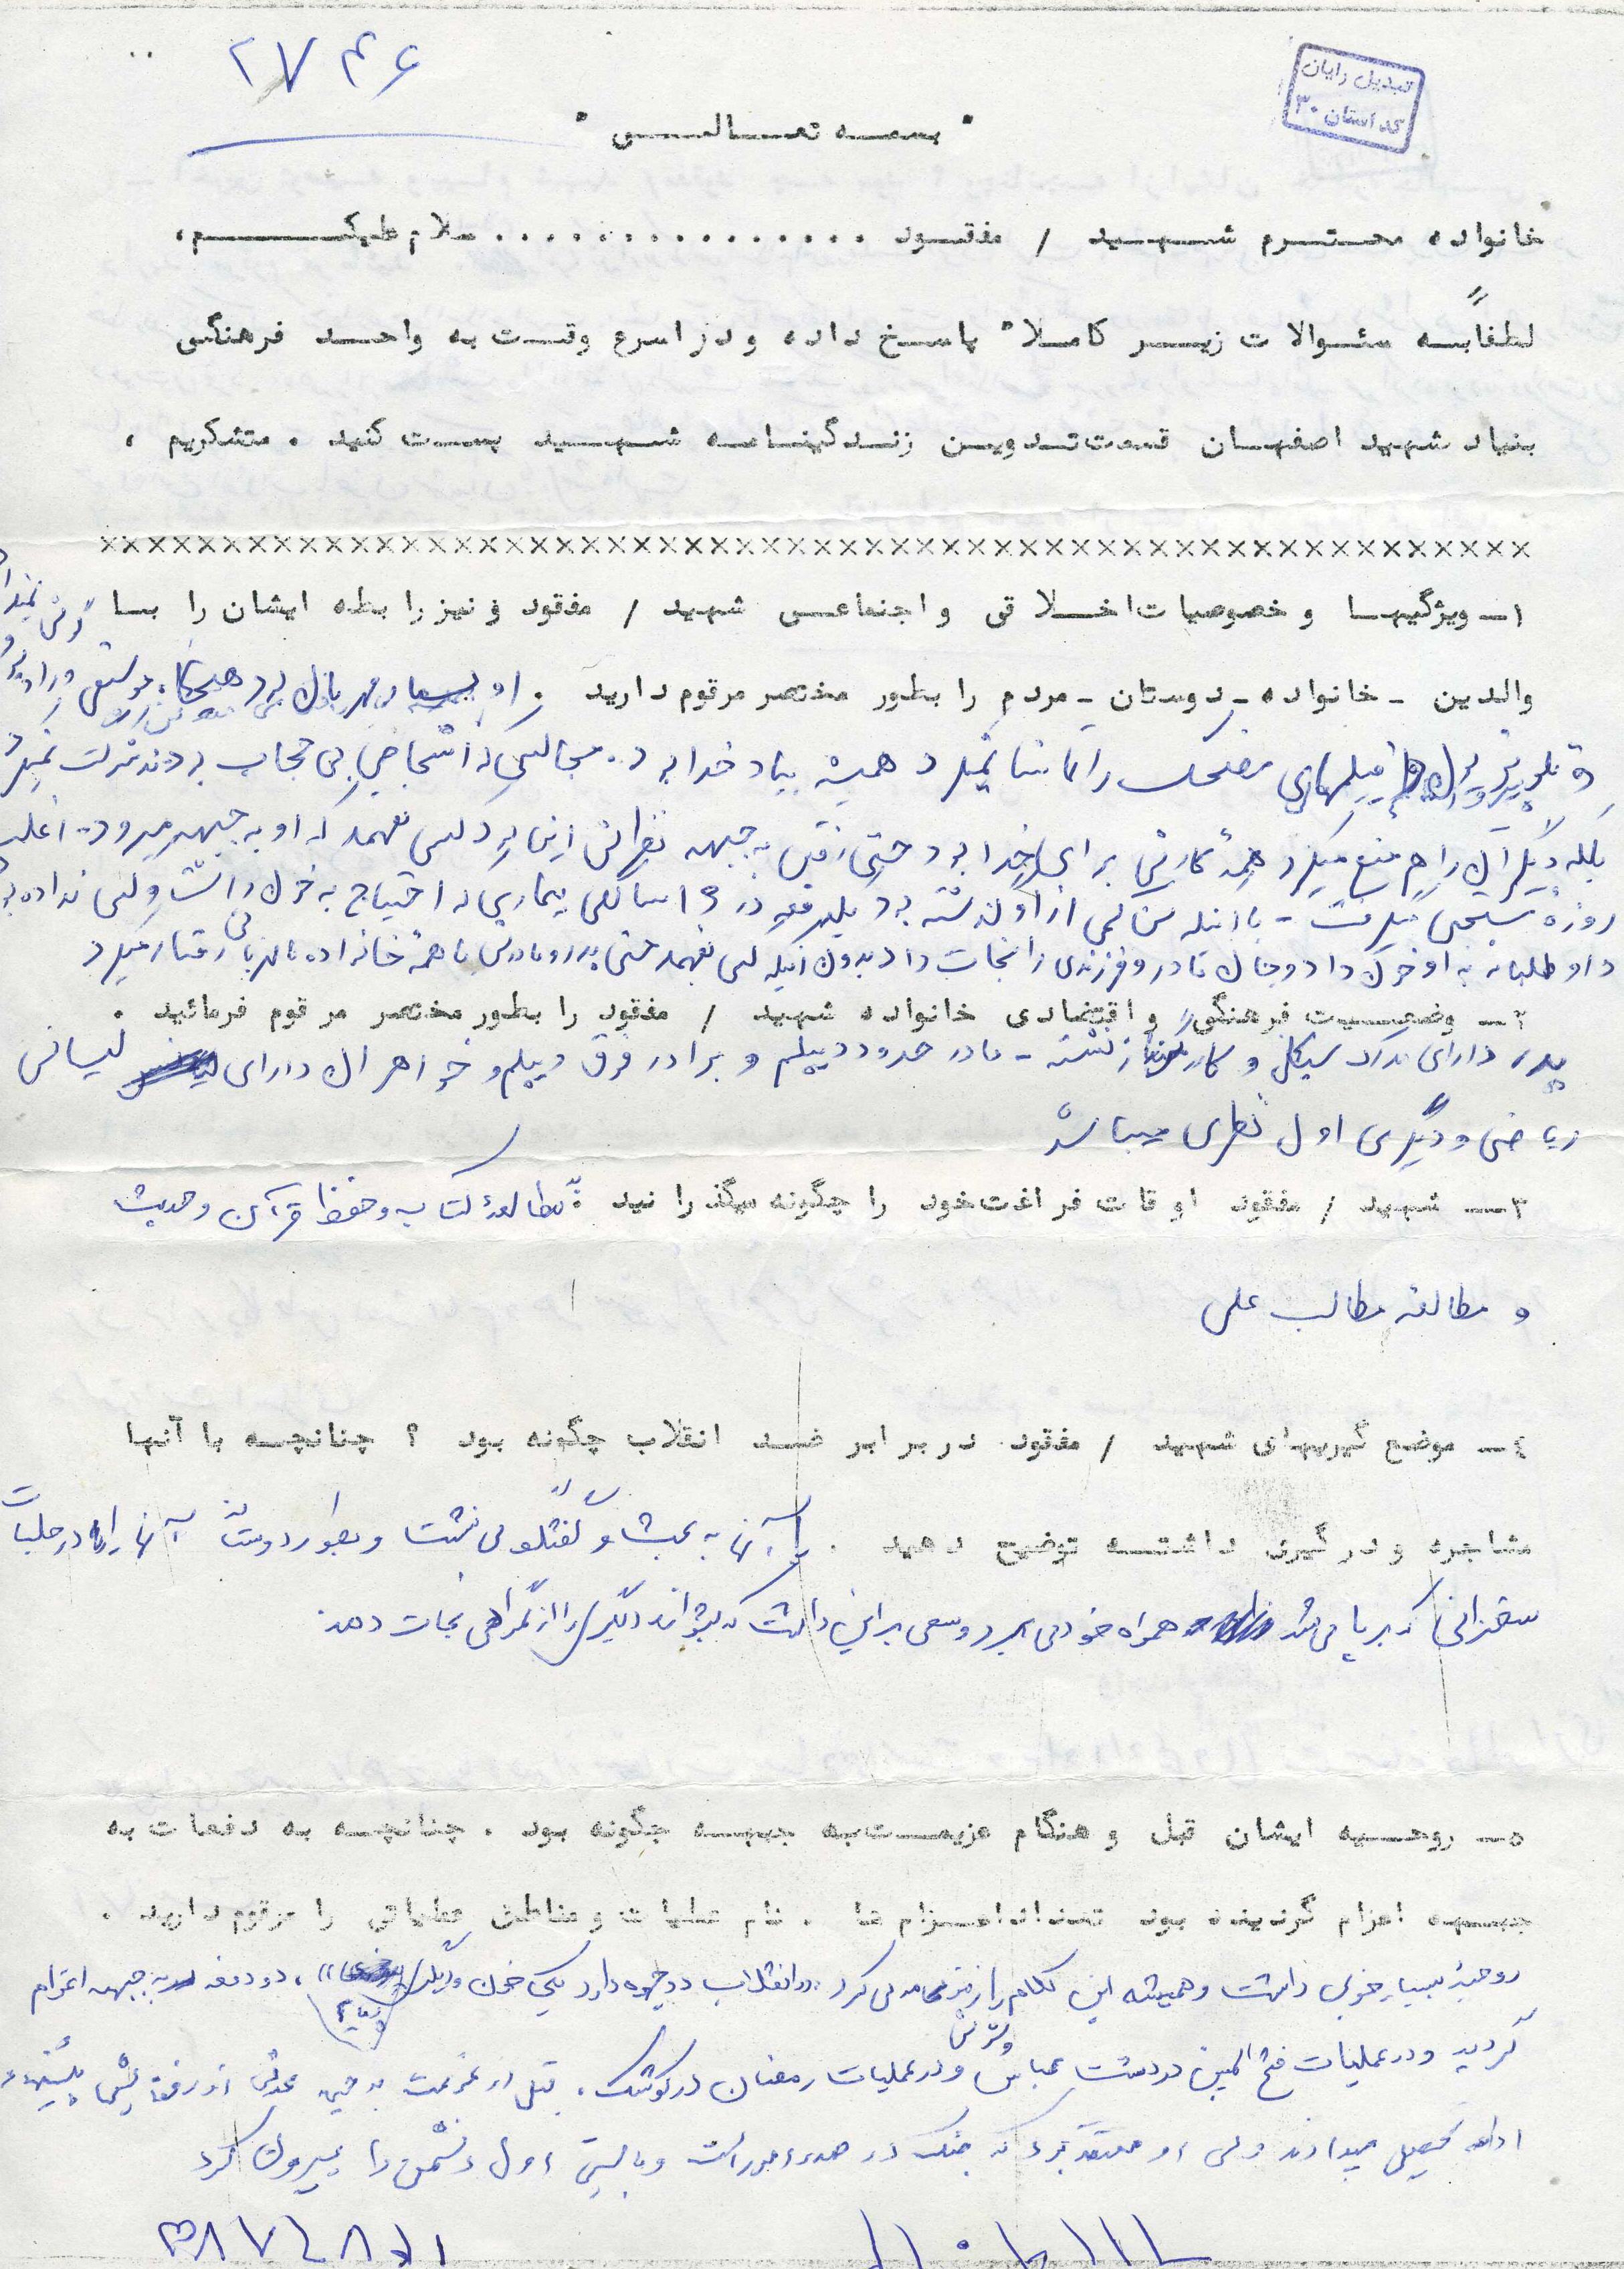 ۲۷۴۶
تبدیل رایان
کد استان ۳۰
" بسمه تعالی "
خانواده محترم شهید / مفقود ................ سلام علیکم،
لطفاً به سئوالات زیر کاملا" پاسخ داده و در اسرع وقت به واحد فرهنگی
بنیاد شهید اصفهان قسمت تدوین زندگینامه شهید پست کنید . متشکریم .
××××××××××××××××××××××××××××××××××××××××××××××××××××××××
۱ـ ویژگیها و خصوصیات اخلاقی و اجتماعی شهید / مفقود و نیز رابطه ایشان را با
والدین - خانواده - دوستان - مردم را بطور مختصر مرقوم دارید . او بسیار مهربان بود هیچگاه موسیقی
فیلمهای مضحک را تماشا نمیکرد همیشه بیاد خدا بود . مجالسی که اشخاص بی حجاب بودند شرکت نمیکرد
بلکه دیگران را هم منع میکرد همه کارش برای خدا بود حتی رفتن به جبهه نظرش این بود کسی نفهمد که او به جبهه میرود . اغلب
روزه مستحبی میگرفت - با اینکه سن کمی از او گذشته بود یکدفعه در ۱۶ سالگی بیماری که احتیاج به خون داشت و کسی نداده بود
داوطلبانه به او خون داد و جان مادر و فرزندی را نجات داد بدون اینکه کسی بفهمد حتی پدر و مادرش با همه خانواده مهربانی رفتار میکرد
۲ـ وضعیت فرهنگی و اقتصادی خانواده شهید / مفقود را بطور مختصر مرقوم فرمائید .
پدر دارای مدرک سیکل و کارمند بازنشسته - مادر حدود دیپلم و برادر فوق دیپلم و خواهران دارای لیسانس
ریاضی و دیگری اول نظری میباشد
۳ـ شهید / مفقود اوقات فراغت خود را چگونه میگذرانید ؟ مطالعه کتاب و حفظ قرآن و حدیث
و مطالعه مطالب علمی
۴ـ موضع گیریهای شهید / مفقود در برابر ضد انقلاب چگونه بود ؟ چنانچه با آنها
مشاجره و درگیری داشته توضیح دهید . با آنها به بحث و گفتگو می نشست و بطور دوستانه آنها را در جلسات
سخنرانی که برپا می شد همراه خود می برد و سعی بر این داشت که بتواند دیگران را از گمراهی نجات دهد .
۵ـ روحیه ایشان قبل و هنگام عزیمت به جبهه چگونه بود . چنانچه به دفعات به
جبهه اعزام گردیده بود تعداد اعزام ها . نام عملیات و مناطق عملیاتی را مرقوم دارید .
روحیه بسیار خوبی داشت و همیشه این کلام را زمزمه می کرد «انقلاب دو چهره دارد یکی خون و دیگری پیام» ، دو دفعه به جبهه اعزام
گردید و در عملیات فتح المبین در دشت عباس و شوش و در عملیات رمضان در کوشک . قبل از عزیمت به جبهه عده ای از رفقایش پیشنهاد
ادامه تحصیل میدادند ولی او معتقد بود که جنگ در صدر امور است و بایستی اول دشمن را بیرون کرد